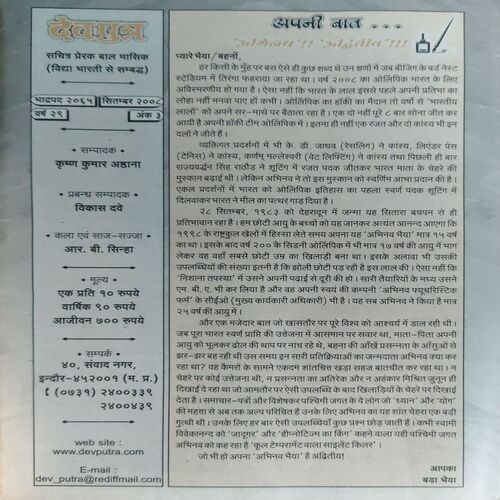 देवपुत्र
सचित्र प्रेरक बाल मासिक
(विद्या भारती से सम्बद्ध)
भाद्रपद २०६५ सितम्बर २००८
वर्ष २९ अंक ३
• सम्पादक •
कृष्ण कुमार अष्ठाना
• प्रबन्ध सम्पादक •
विकास दवे
• कला एवं साज-सज्जा •
आर. बी. सिन्हा
• मूल्य •
एक प्रति १० रुपये
वार्षिक ९० रुपये
आजीवन ७०० रुपये
• सम्पर्क •
४०, संवाद नगर,
इन्दौर-४५२००१ (म. प्र.)
(०७३१) २४००३३९
२४००४३९
web site :
www.devputra.com
E-mail :
dev_putra@rediffmail.com
अपनी बात ...
'अभिनव' !! 'अद्वितीय' !!!
प्यारे भैया/बहनों,
हर किसी के मुँह पर बस ऐसे ही कुछ शब्द थे उन क्षणों में जब बीजिंग के बर्ड नेस्ट
स्टेडियम में तिरंगा फहराया जा रहा था। वर्ष २००८ का ओलिंपिक भारत के लिए
अविस्मरणीय हो गया है। ऐसा नहीं कि भारत के लाल इससे पहले अपनी प्रतिभा का
लोहा नहीं मनवा पाए हों कभी। ओलिंपिक का हॉकी का मैदान तो वर्षों से 'भारतीय
लालों' को अपने सर-माथे पर बैठाता रहा है। एक दो नहीं पूरे ८ बार सोना जीत कर
आयी है अपनी हॉकी टीम ओलिंपिक में। इतना ही नहीं एक रजत और दो कांस्य भी इन
दलों ने जीते हैं।
व्यक्तिगत प्रदर्शनों में भी के. डी. जाधव (रेसलिंग) ने कांस्य, लिएंडर पेस
(टेनिस) ने कांस्य, कर्णम मल्लेश्वरी (वेट लिफ्टिंग) ने कांस्य तथा पिछली ही बार
राज्यवर्द्धन सिंह राठौड ने शूटिंग में रजत पदक जीतकर भारत माता के चेहरे की
मुस्कान बढ़ाई थी। लेकिन अभिनव ने तो इस मुस्कान को स्वर्णिम आभा प्रदान की है।
एकल प्रदर्शनों में भारत को ओलिंपिक इतिहास का पहला स्वर्ण पदक शूटिंग में
दिलवाकर भारत ने मील का पत्थर गाड़ दिया है।
२८ सितम्बर, १९८३ को देहरादून में जन्मा यह सितारा बचपन से ही
प्रतिभावान रहा है। हम छोटी आयु के बच्चों को यह जानकर अत्यंत आनन्द आएगा कि
१९९८ के राष्ट्रकुल खेलों में हिस्सा लेते समय अपना यह 'अभिनव भैया' मात्र १५ वर्ष
का था। इसके बाद वर्ष २०० के सिडनी ओलिंपिक में भी मात्र १७ वर्ष की आयु में भाग
लेकर वह वहाँ सबसे छोटी उम्र का खिलाड़ी बना था। इसके अलावा भी उसकी
उपलब्धियों की संख्या इतनी है कि झोली छोटी पड़ रही है इस लाल की। ऐसा नहीं कि
'निशाना तपस्या' में उसने अपनी पढ़ाई से दूरी की हो। सारी तैयारियों के मध्य उसने
एम. बी. ए. भी कर लिया है और वह अपनी स्वयं की कम्पनी 'अभिनव फ्यूचरिस्टिक
फर्म' के सीईओ (मुख्य कार्यकारी अधिकारी) भी है। यह सब अभिनव ने किया है मात्र
२५ वर्ष की आयु में।
और एक मजेदार बात जो खासतौर पर पूरे विश्व को आश्चर्य में डाल रही थी।
जब पूरा भारत स्वर्ण प्राप्ति की उत्तेजना में आसमान पर सवार था, माता-पिता अपनी
आयु को भूलकर ढोल की थाप पर नाच रहे थे, बहना की आँखें प्रसन्नता के आँसुओं से
झर-झर बह रही थी उस समय इन सारी प्रतिक्रियाओं का जन्मदाता अभिनव क्या कर
रहा था? वह कैमरों के सामने एकदम शांतचित्त खड़ा सहज बातचीत कर रहा था। न
चेहरे पर कोई उत्तेजना थी, न प्रसन्नता का अतिरेक और न अहंकार मिश्रित जुनून ही
दिखाई दे रहा था जो आमतौर पर ऐसी उपलब्धि के बाद खिलाड़ियों के चेहरे पर दिखाई
देता है। समाचार-पत्रों और विशेषकर पश्चिमी जगत के वे लोग जो 'ध्यान' और 'योग'
की महत्ता से अब तक अल्प परिचित हैं उनके लिए अभिनव का यह शांत चेहरा एक बड़ी
गुत्थी थी। उनके लिए हर बार ऐसी उपलब्धियाँ कुछ प्रश्न छोड़ जाती हैं। कभी स्वामी
विवेकानन्द को 'जादूगर' और 'हीप्नोटिज्म का किंग' कहने वाला यही पश्चिमी जगत
अभिनव को कह रहा है 'कूल टेम्परामेंट वाला साइलेंट किलर'।
जो भी हो अपना 'अभिनव भैया' है अद्वितीय!
आपका
बड़ा भैया